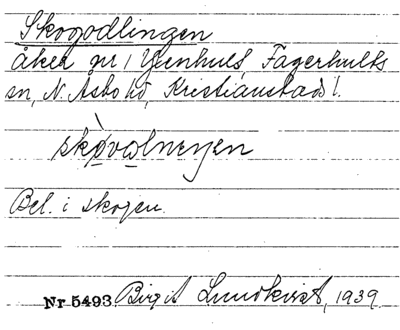 Skogodlingen
åker nr 1 Ljunhult, Fagerhults
sn, N. Åsbo hd, Kristianstads l.
skòvolneŋen
Bel. i skogen.
Nr 5493 Birgit Lundkvist, 1939.